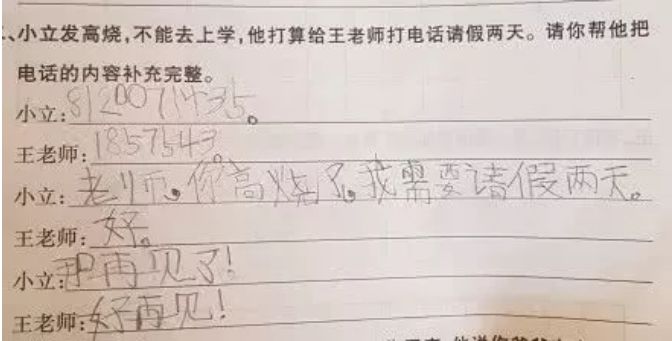 、小立发高烧,不能去上学,他打算给王老师打电话请假两天。请你帮他把
电话的内容补充完整。
小立:8120071435。
王老师:1857543。
小立:老师。你高烧了。我需要请假两天。
王老师:好。
小立:那再见了!
王老师:好再见!